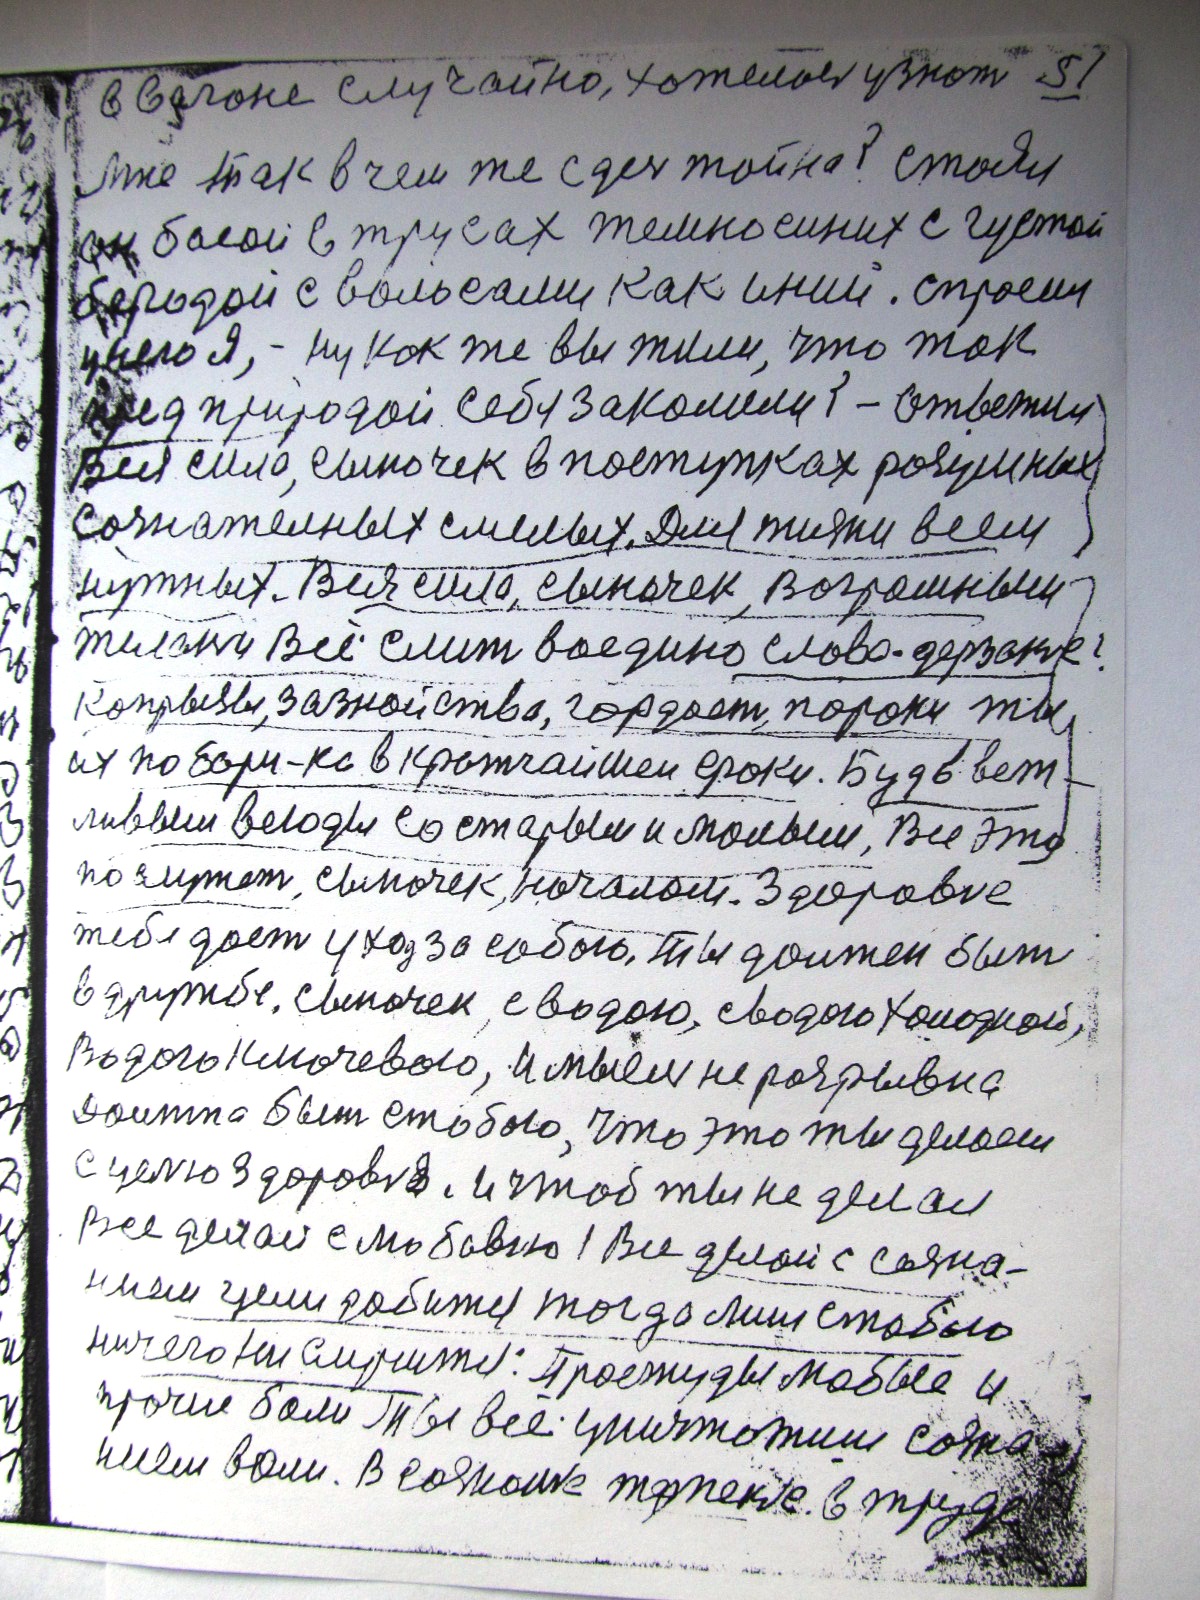 в вагоне случайно, хотелося узнат 51
Мне так в чем же здея тайна? стоял
он босой в трусах темносиних с густой
бородой с вольсами как иний. спросил
у него я, - ну как же вы жили, что так
пред природой себя заколили? - ответил
Вся сила, сыночек в поступках разумных
сознателных смелых. Для жизни всем
нужных. Вся сила, сыночек, в огромным
желани Всё слит воедино слово-дерзание?
Капрызы, зазнойство, гордост, пороки ты
их побори-ка в кратчайшеи сроки. Будь веж-
ливым всюды со старым и малым, Все это
послужит, сыночек, началом. Здоровие
тебя дает уход за собою. Ты должен быт
в дружбе, сыночек, с водою, с водою холодной,
Водою ключевою, и мысля неразрывна
Должна быт с тобою, что это ты делаеш
с целю здоровя. И чтоб ты не делал
Все делай с любовию! Все делай с созна-
нием цели добится тогда лиш с тобою
ничего ни случится: Простуды любые и
прочие боли Ты всё уничтожиш созна-
нием воли. В сознание терпение. в труде